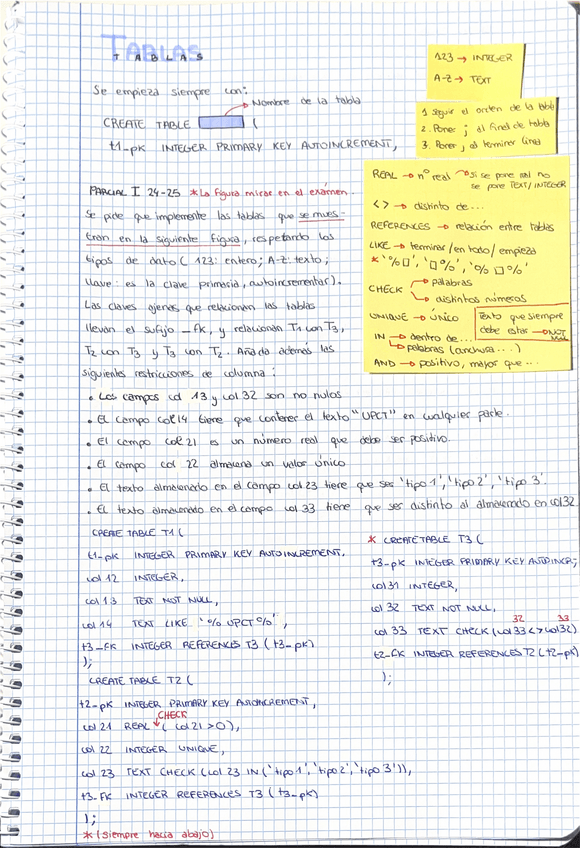 TABLAS
TABLAS
Se empieza siempre con:
Nombre de la tabla
CREATE TABLE (
t1-pk INTEGER PRIMARY KEY AUTOINCREMENT,
123 → INTEGER
A-Z → TEXT
1 Seguir el orden de la tabla
2. Poner ; al final de tabla
3. Poner , al terminar línea
REAL → nº real → Si se pone real no
se pone TEXT/INTEGER
<> → distinto de...
REFERENCES → relación entre tablas
LIKE → terminar/en todo/empieza
* '%□', '□%', '%□%'
CHECK → palabras
→ distintos números
UNIQUE → único
Texto que siempre
debe estar → NOT
NULL
IN → dentro de...
→ palabras (anchura...)
AND → positivo, mayor que...
PARCIAL I 24-25 * La figura mirar en el exámen.
Se pide que implemente las tablas que se mues-
tran en la siguiente figura, respetando los
tipos de dato (123: entero; A-Z: texto;
llave: es la clave primaria, autoincrementar).
Las claves ajenas que relacionan las tablas
llevan el sufijo _fk, y relacionan T1 con T3,
T2 con T3 y T3 con T2. Añada además las
siguientes restricciones de columna:
• Los campos col 13 y col 32 son no nulos
• El campo col 14 tiene que contener el texto "UPCT" en cualquier parte.
• El campo col 21 es un número real que debe ser positivo.
• El campo col 22 almacena un valor único
• El texto almacenado en el campo col 23 tiene que ser 'tipo 1', 'tipo 2', 'tipo 3'.
• El texto almacenado en el campo col 33 tiene que ser distinto al almacenado en col 32.
CREATE TABLE T1 (
t1-pk INTEGER PRIMARY KEY AUTOINCREMENT,
col 12 INTEGER,
col 13 TEXT NOT NULL,
col 14 TEXT LIKE '% UPCT %',
t3-FK INTEGER REFERENCES T3 (t3-pk)
);
CREATE TABLE T2 (
t2-pk INTEGER PRIMARY KEY AUTOINCREMENT,
CHECK
col 21 REAL (col 21 >0),
col 22 INTEGER UNIQUE,
col 23 TEXT CHECK (col 23 IN ('tipo 1', 'tipo 2', 'tipo 3')),
t3-FK INTEGER REFERENCES T3 (t3-pk)
);
* (siempre hacia abajo)
* CREATE TABLE T3 (
t3-pk INTEGER PRIMARY KEY AUTOINCR;
col 31 INTEGER,
col 32 TEXT NOT NULL,
32 33
col 33 TEXT CHECK (col 33 <> col 32)
t2-FK INTEGER REFERENCES T2 (t2-pk)
);